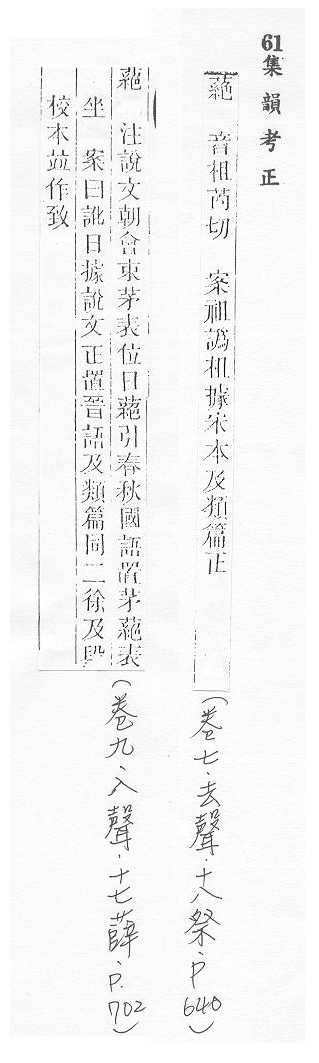 61集韻考正
蕝 音祖芮切 案祖譌柤據宋本及類篇正
(卷七、去聲、十八祭、P 640)
蕝 注說文朝會束茅表位曰蕝引春秋國語置茅蕝表
坐 案曰訛日據說文正置晉語及類篇同二徐及段
校本竝作致
(卷九、入聲、十七薛、P. 702)